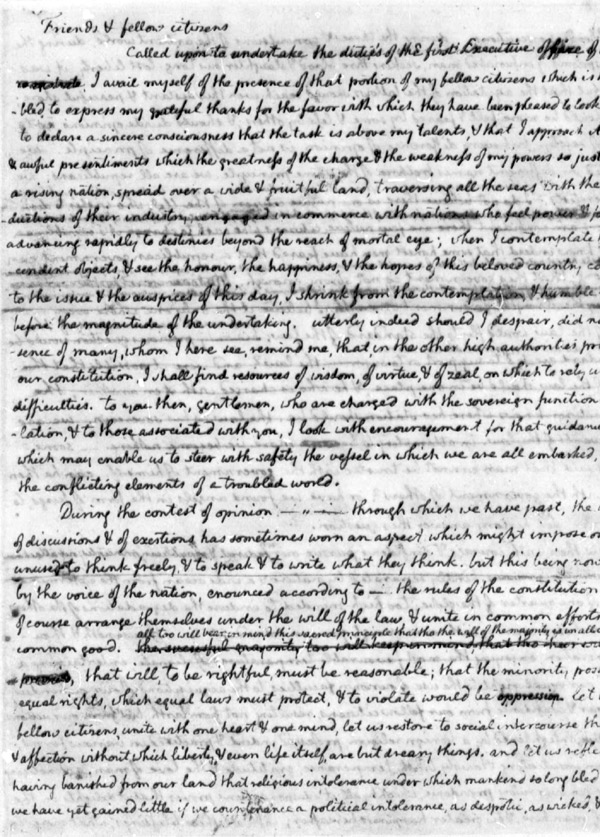 Friends & fellow citizens
Called upon to undertake the duties of the first Executive office of
I avail myself of the presence of that portion of my fellow citizens which is
-bled to express my grateful thanks for the favor with which they have been pleased to look
to declare a sincere consciousness that the task is above my talents & that I approach it
& awful presentiments which the greatness of the charge & the weakness of my powers so just
a rising nation, spread over a wide & fruitful land, traversing all the seas with the
-ductions of their industry, engaged in commerce with nations who feel power &
advancing rapidly to destinies beyond the reach of mortal eye; when I contemplate
-cendent objects, & see the honour, the happiness, & the hopes of this beloved country
to the issue & the auspices of this day, I shrink from the contemplation, & humble
before the magnitude of the undertaking. utterly indeed should I despair, did no
-sence of many, whom I here see, remind me, that in the other high authorities pr
our constitution, I shall find resources of wisdom, of virtue, & of zeal, on which to rely
difficulties. to you then, gentlemen, who are charged with the sovereign function
-lation, & to those associated with you, I look with encouragement for that guidan
which may enable us to steer with safety the vessel in which we are all embarked,
the conflicting elements of a troubled world.
During the contest of opinion — „ — through which we have past, the
of discussions & of exertions has sometimes worn an aspect which might impose on
unused to think freely, & to speak & to write what they think. but this being now
by the voice of the nation, enounced according to — the rules of the constitution
of course arrange themselves under the will of the law, & unite in common efforts
all too will bear in mind this sacred principle that tho the will of the majority is in all
common good. the sucessful majority too will keep in mind, that tho their
that will to be rightful must be reasonable; that the minority pos
equal rights, which equal laws must protect, & to violate would be oppression. Let
fellow citizens, unite with one heart & one mind, let us restore to social intercourse th
& affection without which liberty, & even life itself, are but dreary things. and let us refle
having banished from our land that religious intolerance under which mankind so long bled
we have yet gained little if we countenance a political intolerance, as despotic, as wicked, &